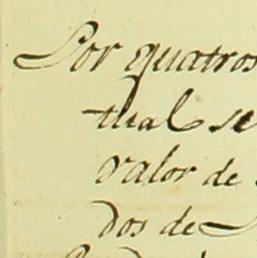 Por quatros
tual se
valor de
dos de